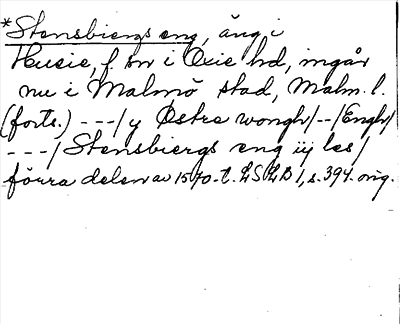 *Stensbiergs eng, äng i
Husie, f. sn i Oxie hd, ingår
nu i Malmö stad, Malm. l.
(forts.) ---/ y Østre wongh/--/Engh/
---/ Stensbiergs eng iij les/
förra delen av 1570-t. LSLB 1, s. 394. orig.